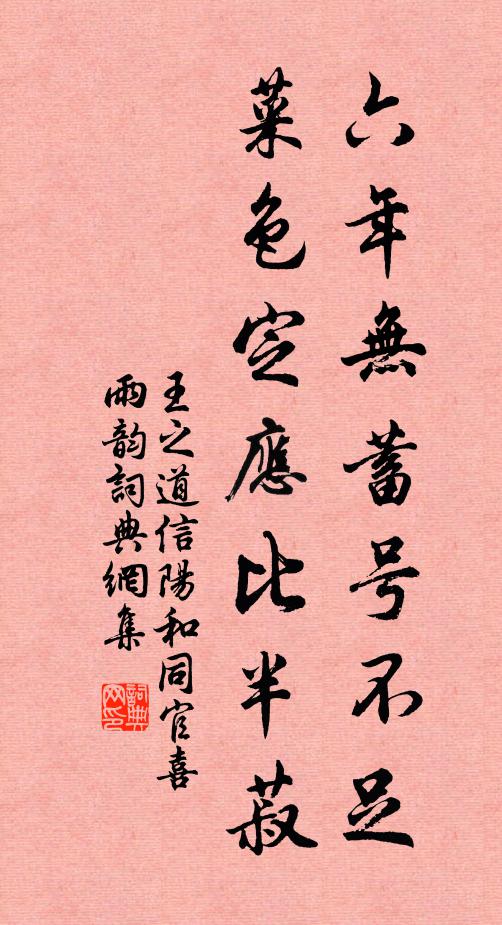 六年無蓄号不足
菜色定應比半菽
王之道信陽和同官喜
雨韵詞典網集
詞典網印